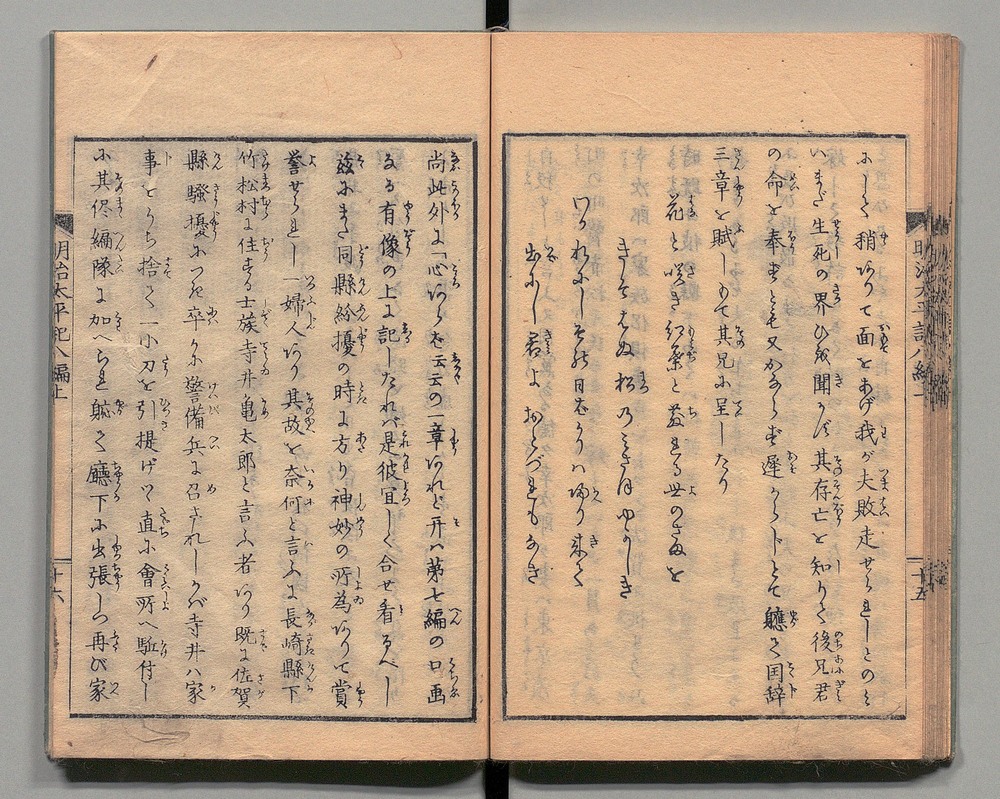 にして稍ありて面をあげ我が夫敗走せられしとのミ
いまだ生死の界ひを聞かず其存亡を知りて後兄君
の命を奉ずとも又かならず遅からじとて軈て国辞
三章を賦しもて其兄に呈したり
花と咲き紅葉と散るも世のさまを
きしてはぬ松のみさほやかしき
わかれにしその日ばかりハめぐり来て
出にし君よおとづれもなき
尚此外に「心あらば云云の一章あれど开ハ第七編の口画
なる有像の上に記したれバ是彼宜しく合せ看るべし
茲にまた同縣紛擾の時に方り神妙の所為ありて賞
誉せられし一婦人あり其故を奈何と言ふに長崎縣下
竹松村に住する士族寺井亀太郎と言ふ者あり既に佐賀
縣騒擾につき卒かに警備兵に召されしかバ寺井ハ家
事をうち捨て一小刀を引提げつ直に會所へ駈付し
に其侭編隊に加へられ軈て廳下に出張しつ再び家
明治太平記八編上
十五
明治太平記八編上
十六